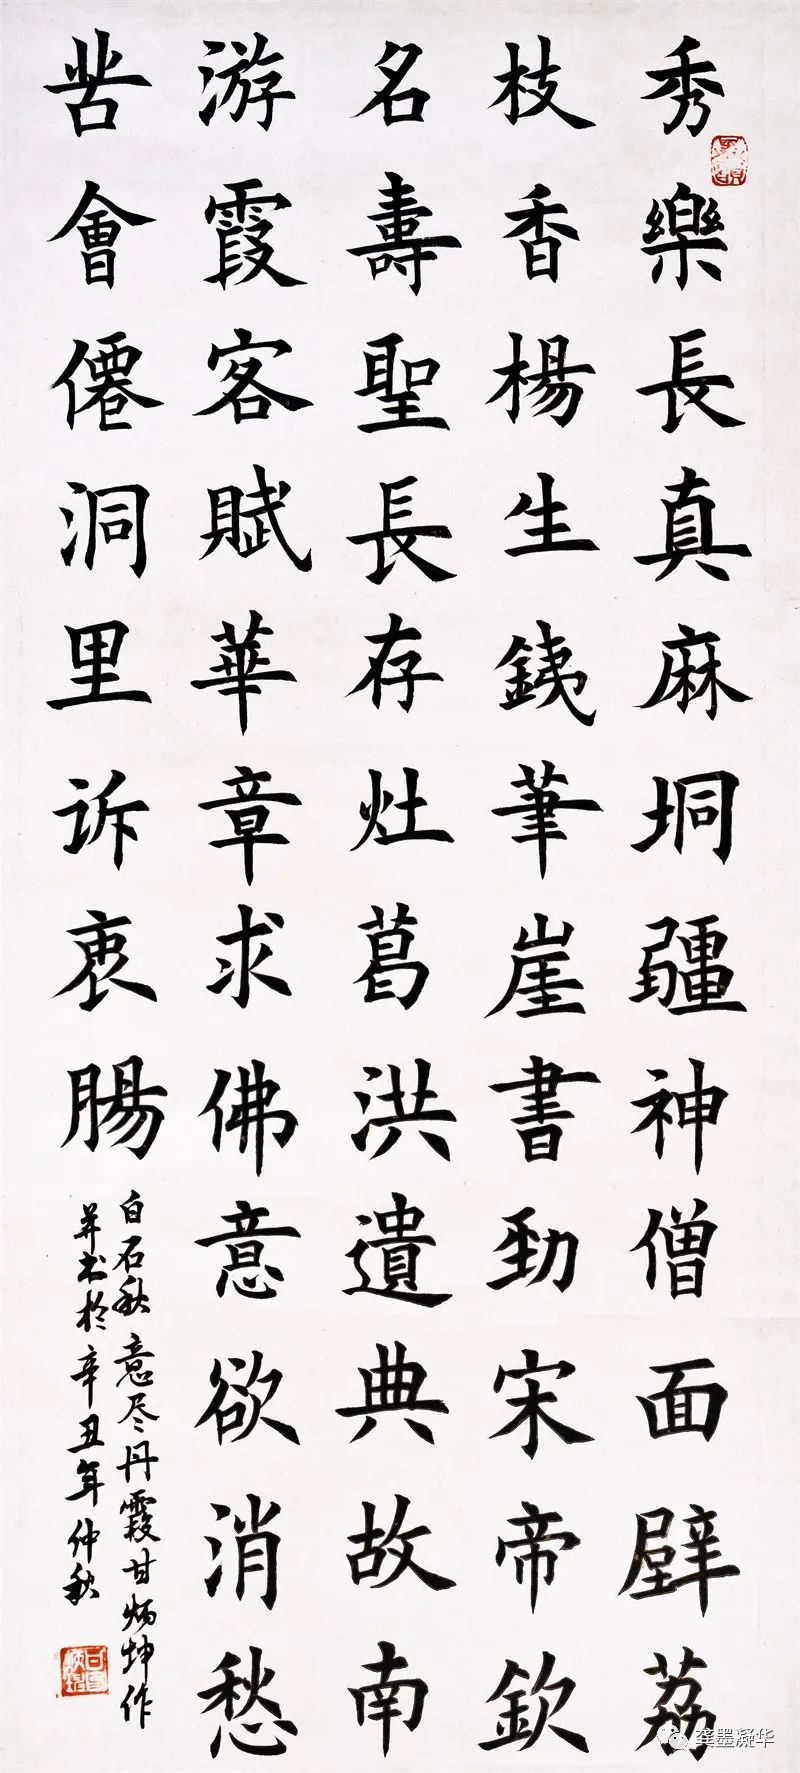 秀樂長真麻垌疆神僧面壁荔
枝香楊生銕筆崖書勁宋帝欽
名壽聖長存灶葛洪遺典故南
游霞客賦華章求佛意欲消愁
苦會僊洞里诉衷腸
白石秋意尽丹霞甘炳坤作
并书於辛丑年仲秋
龚墨凝华